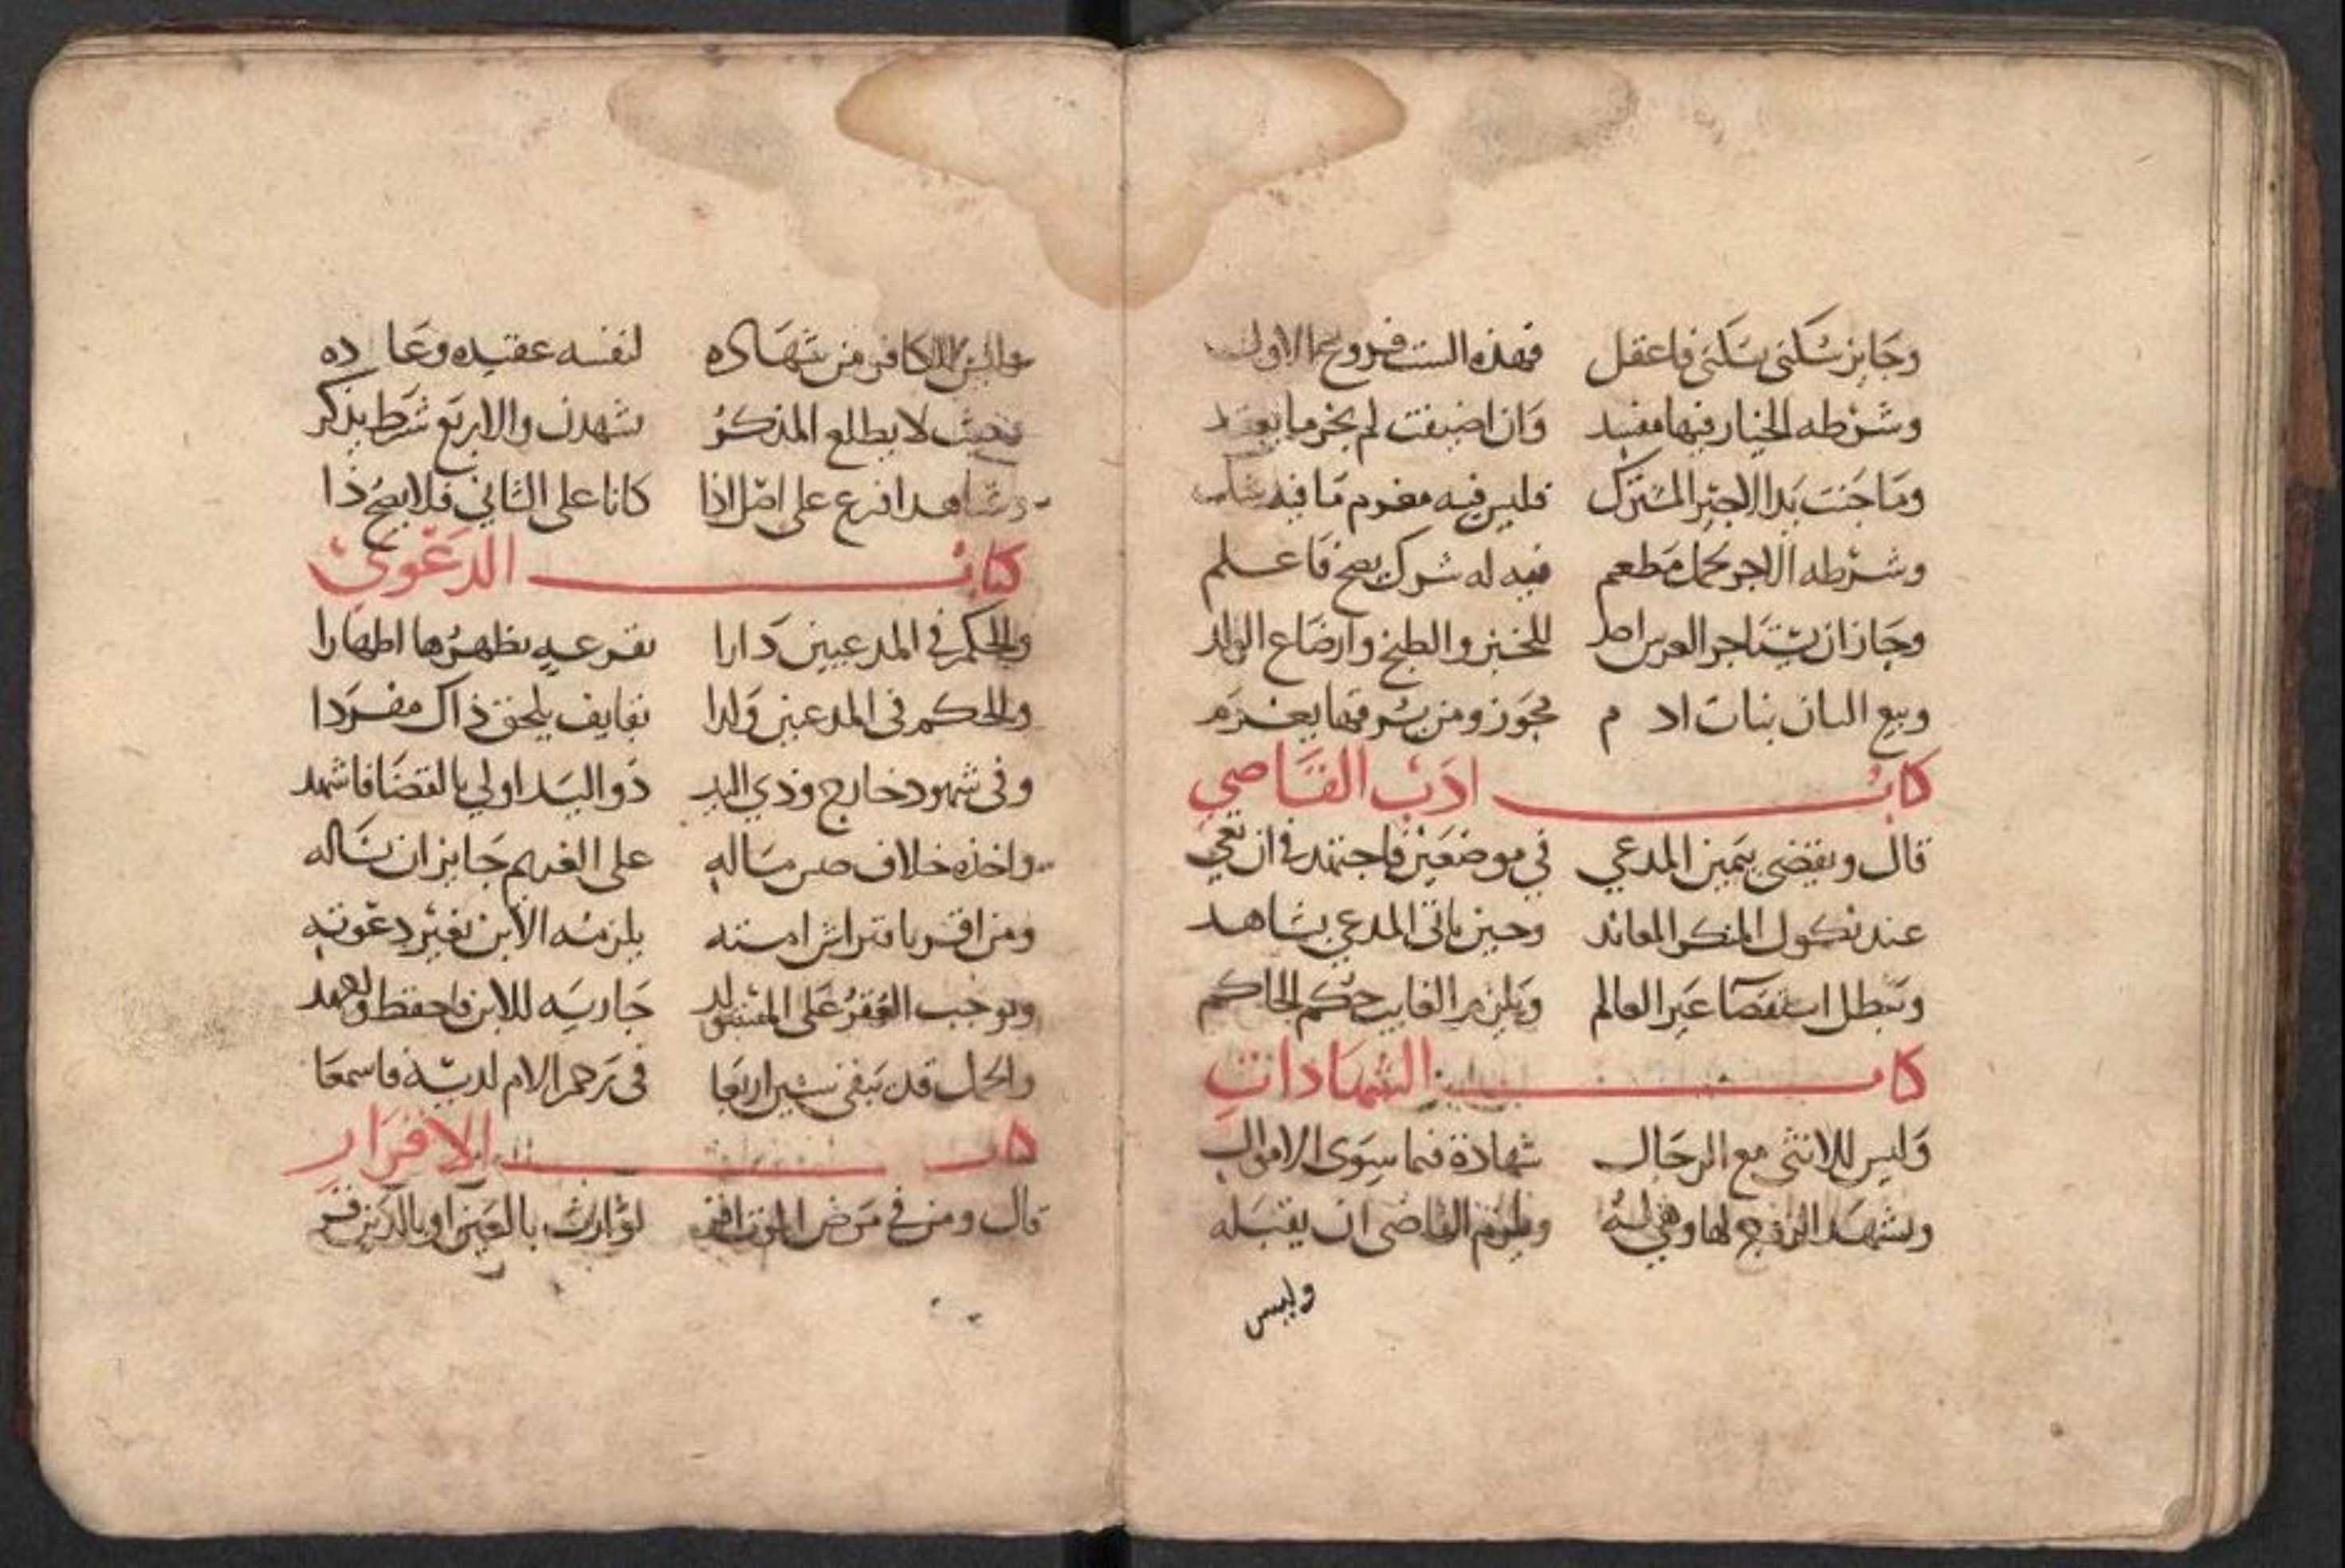 وجايز سكنى بسكنى فاعقل فهذه الست فروع الاول
وشرطه الخيار فيها مفسد وان اضيفت لم يجز ما يعقد
وما جنت يدا الاجير المشترك فليس فيه مغرم ما فيه شك
وشرطه الاجر بحمل مطعم فيه له شرك يصح فاعلم
وجاز ان يستاجر العرس احد للخبز والطبخ وارضاع الولد
وبيع البان بنات اد م مجوز ومن يشربها يغرم
كتاب ادب القاضي
قال ويقضى بيمين المدعي في موضعين فاجتهد في ان تعي
عند نكول المنكر المعاند وحين ياتى المدعي بشاهد
وتبطل استقضا غير العالم ويلزم الغايب حكم الحاكم
كتاب الشهادات
وليس للانثى مع الرجال شهادة فيما سوى الاموال
ويشهد الزوج لها وهي له ويلزم القاضى ان يقبله
وليس
وليس للكافر من شهاده لنفسه عقيده وعاده
بحيث لا يطلع المذكر تشهدن والاربع شرط يذكر
وشاهدا فرع على اصل اذا كانا على الثاني فلا يصح ذا
كتاب الدعوى
والحكم في المدعيين دارا بقرعه يظهرها اظهارا
والحكم فى المدعين ولدا بقايف يلحق ذاك مفردا
وفى شهود خارج وذي اليد ذو اليد اولي بالقضا فاشهد
واخذه خلاف جنس ماله على الغريم جايز ان ناله
ومن اقر بافتراش امته يلزمه الابن بغير دعوته
ويوجب العقر على المستولد جاريه للابن فاحفظ واجهد
والحمل قد يبقى سنين اربعا فى رحم الام لديه فاسمعا
كتاب الاقرار
قال ومن في مرض الموت اقر لوارث بالعين او بالدين قر